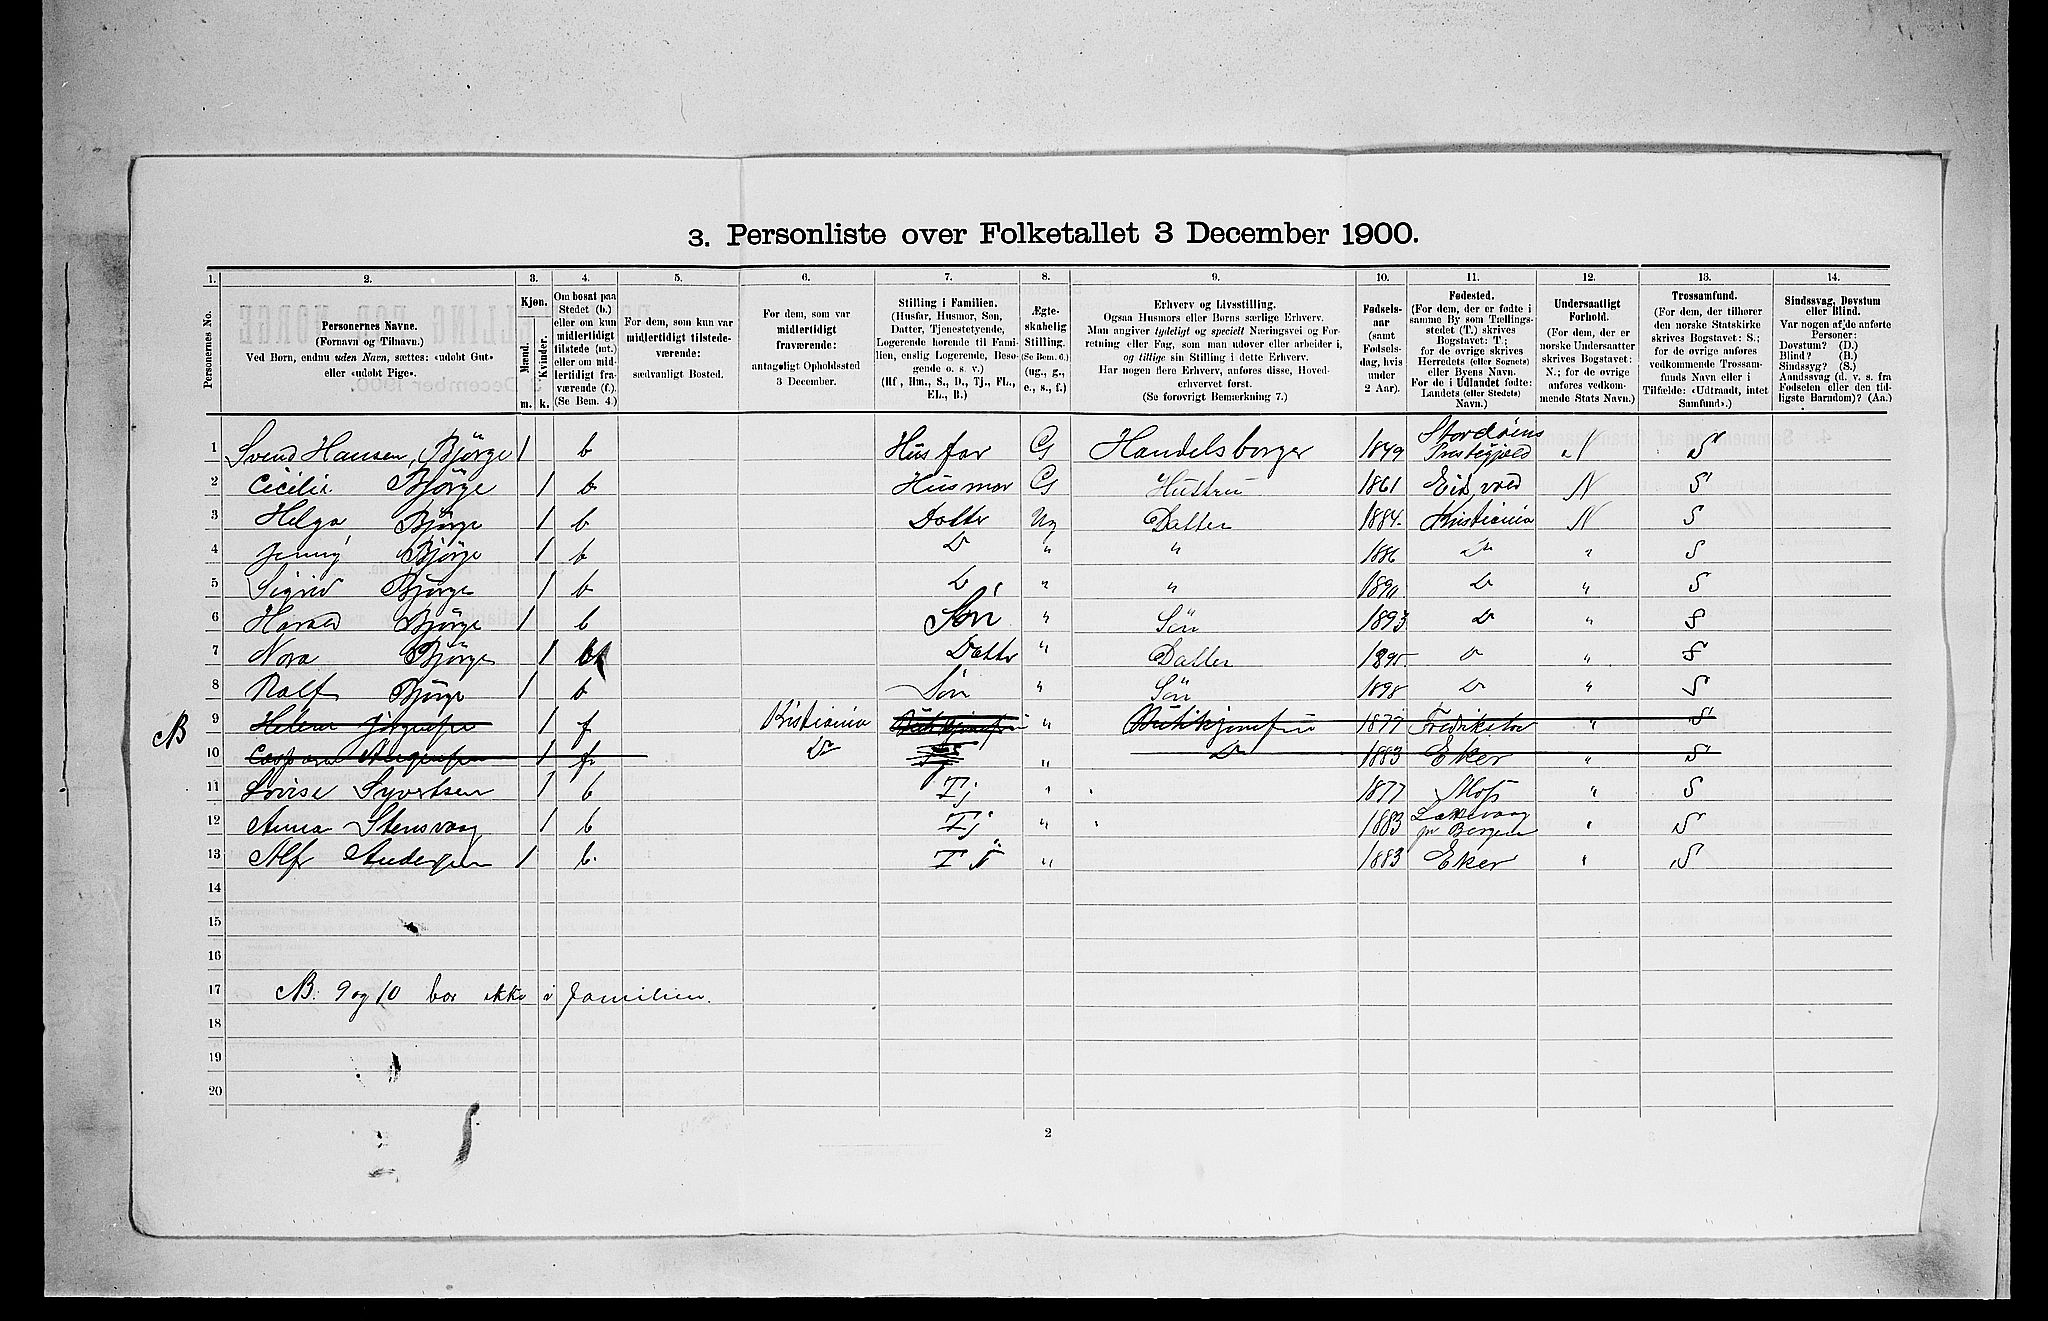 3. Personliste over Folketallet 3 December 1900.
1. 2. 3. 4. 5. 6. 7. 8. 9. 10. 11. 12. 13. 14.
Personernes No.
Personernes Navne.
(Fornavn og Tilnavn.)
Ved Børn, endnu uden Navn, sættes: «udøbt Gut»
eller «udøbt Pige».
Kjøn.
Mænd.
Kvinder.
m. k.
Om bosat paa
Stedet (b.)
eller om kun
midlertidigt
tilstede (mt.)
eller om mid-
lertidigt fra-
værende (f.).
(Se Bem. 4.)
For dem, som kun var
midlertidigt tilstede-
værende:
sædvanligt Bosted.
For dem, som var
midlertidigt
fraværende:
antageligt Opholdssted
3 December.
Stilling i Familien.
(Husfar, Husmor, Søn,
Datter, Tjenestetyende,
Logerende hørende til Fami-
lien, enslig Logerende, Besø-
gende o. s. v.)
(Hf, Hm., S., D., Tj., FL.,
EL., B.)
Ægte-
skabelig
Stilling.
(Se Bem. 6.)
(ug., g.,
e., s., f.)
Erhverv og Livsstilling.
Ogsaa Husmors eller Børns særlige Erhverv.
Man angiver tydeligt og specielt Næringsvei og For-
retning eller Fag, som man udøver eller arbeider i,
og tillige sin Stilling i dette Erhverv.
Har nogen flere Erhverv, anføres disse, Hoved-
erhvervet først.
(Se forøvrigt Bemærkning 7.)
Fødsels-
aar
(samt
Fødsels-
dag, hvis
under
2 Aar).
Fødested.
(For dem, der er fødte i
samme By som Tællings-
stedet (T.) skrives
Bogstavet: T.;
for de øvrige skrives
Herredets (eller Sognets)
eller Byens Navn.
For de i Udlandet fødte:
Landets (eller Stedets)
Navn.)
Undersaatligt
Forhold.
(For dem, der er
norske Undersaatter
skrives Bogstavet:
N.; for de øvrige
anføres vedkom-
mende Stats Navn.)
Trossamfund.
(For dem, der tilhører
den norske Statskirke
skrives Bogstavet: S.;
for de øvrige anføres
vedkommende Trossam-
funds Navn eller i
Tilfælde: «Udtraadt, intet
Samfund».)
Sindssvag, Døvstum
eller Blind.
Var nogen af de anførte
Personer:
Døvstum? (D.)
Blind? (B.)
Sindssyg? (S.)
Aandssvag (d. v. s. fra
Fødselen eller den tid-
ligste Barndom)? (Aa.)
1 Svend Hansen, Björge 1 b Husfar G Handelsborger 1849 Stordöens Prestegjeld N S
2 Cecilie Björge 1 b Husmor G Hustru 1861 Eidsvold N S
3 Helga Björge 1 b Datter Ug Datter 1884 Kristiania N S
4 Jenny Björge 1 b Do " " 1886 Do " S
5 Sigrid Björge 1 b Do " " 1890 Do " S
6 Harald Björge 1 b Sön " Sön 1893 Do " S
7 Nora Björge 1 b Datter " Datter 1895 Do " S
8 Rolf Björge 1 b Sön " Sön 1898 Do " S
NB 9 Helene 1 f Kristiania " 1877 Fredrikstad " S
10 1 f Do " Do 1883 Eker " S
11 Lovise Syvertsen 1 b Tj " 1877 Moss " S
12 Anna Stensvaag 1 b Tj " 1883 Laxevaag pr Bergen " S
13 Alf Andersen 1 b. Tj " 1883 Eker " S
14
15
16
17 NB. 9 og 10 bor ikke i familien.
18
19
20
2